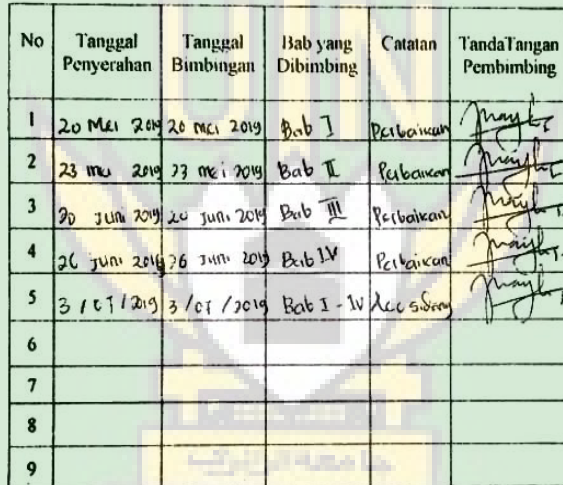 No Tanggal Penyerahan Tanggal Bimbingan Bab yang Dibimbing Catatan TandaTangan Pembimbing
1 20 Mei 2019 20 mei 2019 Bab I Perbaikan
2 23 mei 2019 23 mei 2019 Bab II Perbaikan
3 20 Juni 2019 20 Juni 2019 Bab III Perbaikan
4 26 Juni 2019 26 Juni 2019 Bab IV Perbaikan
5 3 / 07 / 2019 3 / 07 / 2019 Bab I - IV Acc sidang
6
7
8
9
UIN